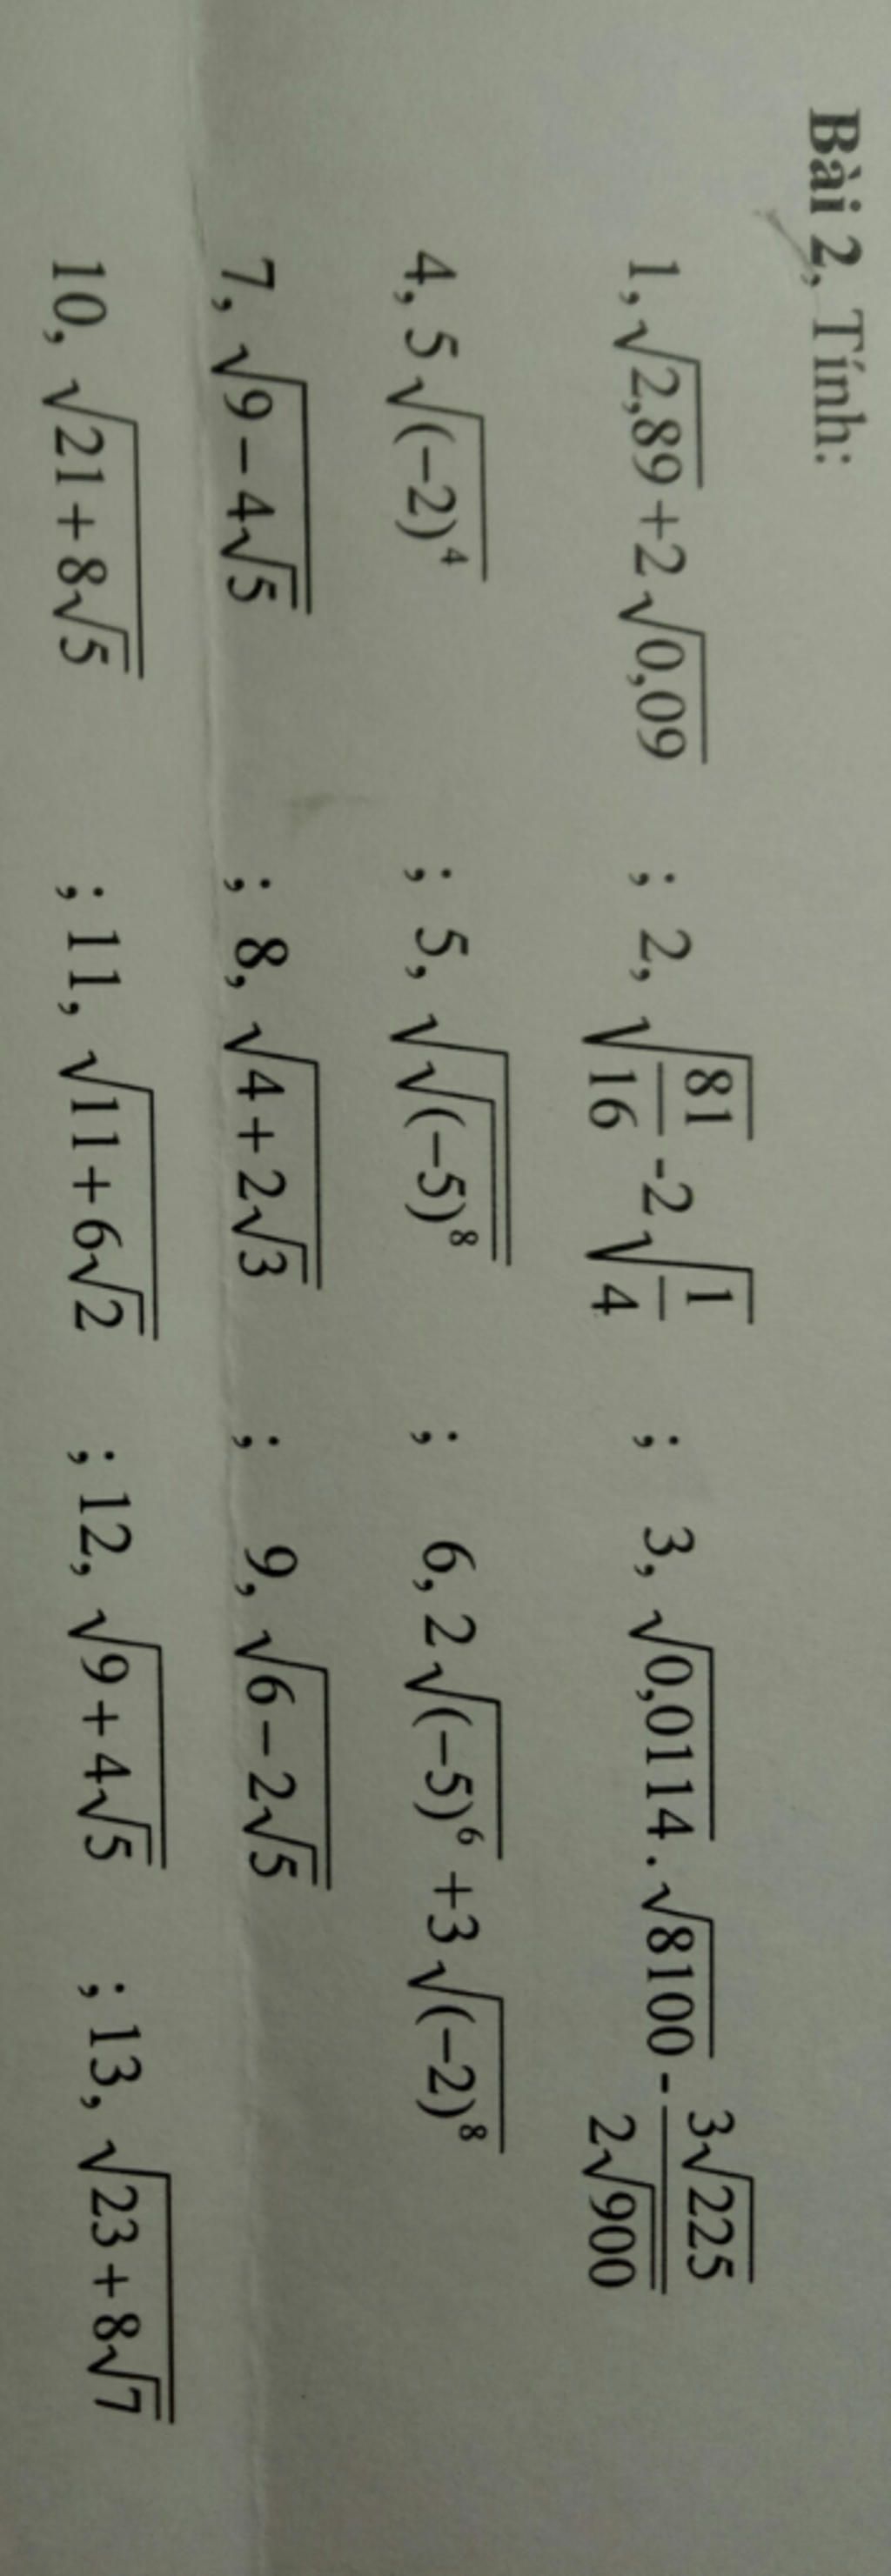 Bài 2, Tính:
1, √2,89 +2√0,09 ; 2, √(81/16) -2√(1/4) ; 3, √0,0114 . √8100 - (3√225)/(2√900)
4, 5√((−2)⁴) ; 5, √(√((−5)⁸)) ; 6, 2√((−5)⁶) +3√((−2)⁸)
7, √(9−4√5) ; 8, √(4+2√3) ; 9, √(6−2√5)
10, √(21+8√5) ; 11, √(11+6√2) ; 12, √(9+4√5) ; 13, √(23+8√7)